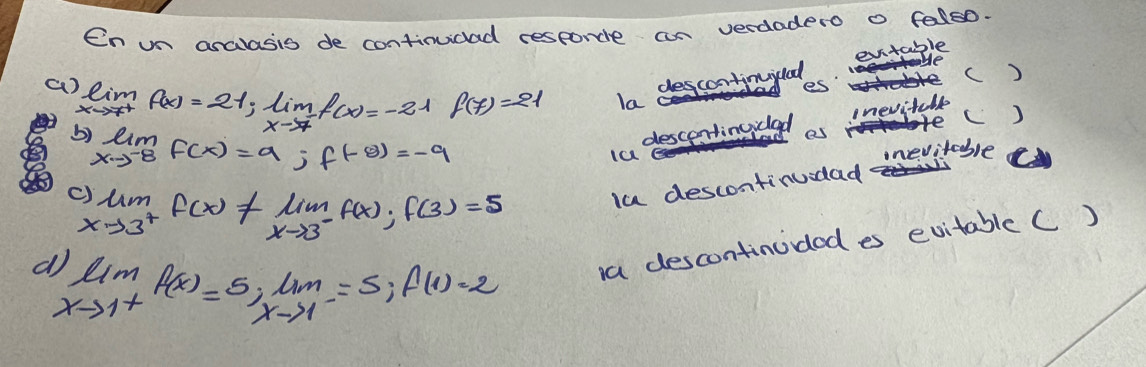 En un analasis de continuidad responde con verdadero o falso.
a) lim x→7+ f(x) = 21; lim x→7- f(x) = -21 f(7) = 21 la descontinuidad es evitable ( )
b) lim x→-8 f(x) = 9 ; f(-8) = -9 la descontinuidad es inevitable ( )
c) lim x→3+ f(x) ≠ lim x→3- f(x); f(3) = 5 la descontinuidad inevitable ( )
d) lim x→1+ f(x) = 5; lim x→1- = 5; f(1) = 2 la descontinuidad es evitable ( )